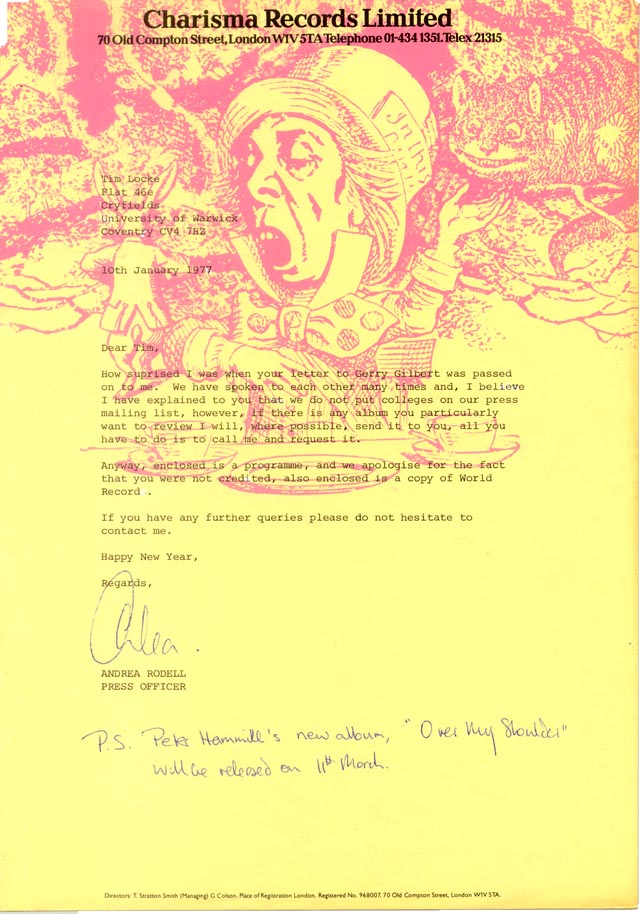 Charisma Records Limited
70 Old Compton Street, London W1V 5TA Telephone 01-434 1351. Telex 21315
Tim Locke
Flat 46e
Cryfields
University of Warwick
Coventry CV4 7HZ
10th January 1977
Dear Tim,
How suprised I was when your letter to Gerry Gilbert was passed
on to me. We have spoken to each other many times and, I believe
I have explained to you that we do not put colleges on our press
mailing list, however, if there is any album you particularly
want to review I will, where possible, send it to you, all you
have to do is to call me and request it.
Anyway, enclosed is a programme, and we apologise for the fact
that you were not credited, also enclosed is a copy of World
Record.
If you have any further queries please do not hesitate to
contact me.
Happy New Year,
Regards,
Andrea.
ANDREA RODELL
PRESS OFFICER
P.S. Peter Hammill's new album, "Over My Shoulder"
will be released on 11th March.
Directors: T. Stratton Smith (Managing) G Colson. Place of Registration London. Registered No. 968007. 70 Old Compton Street, London W1V 5TA.